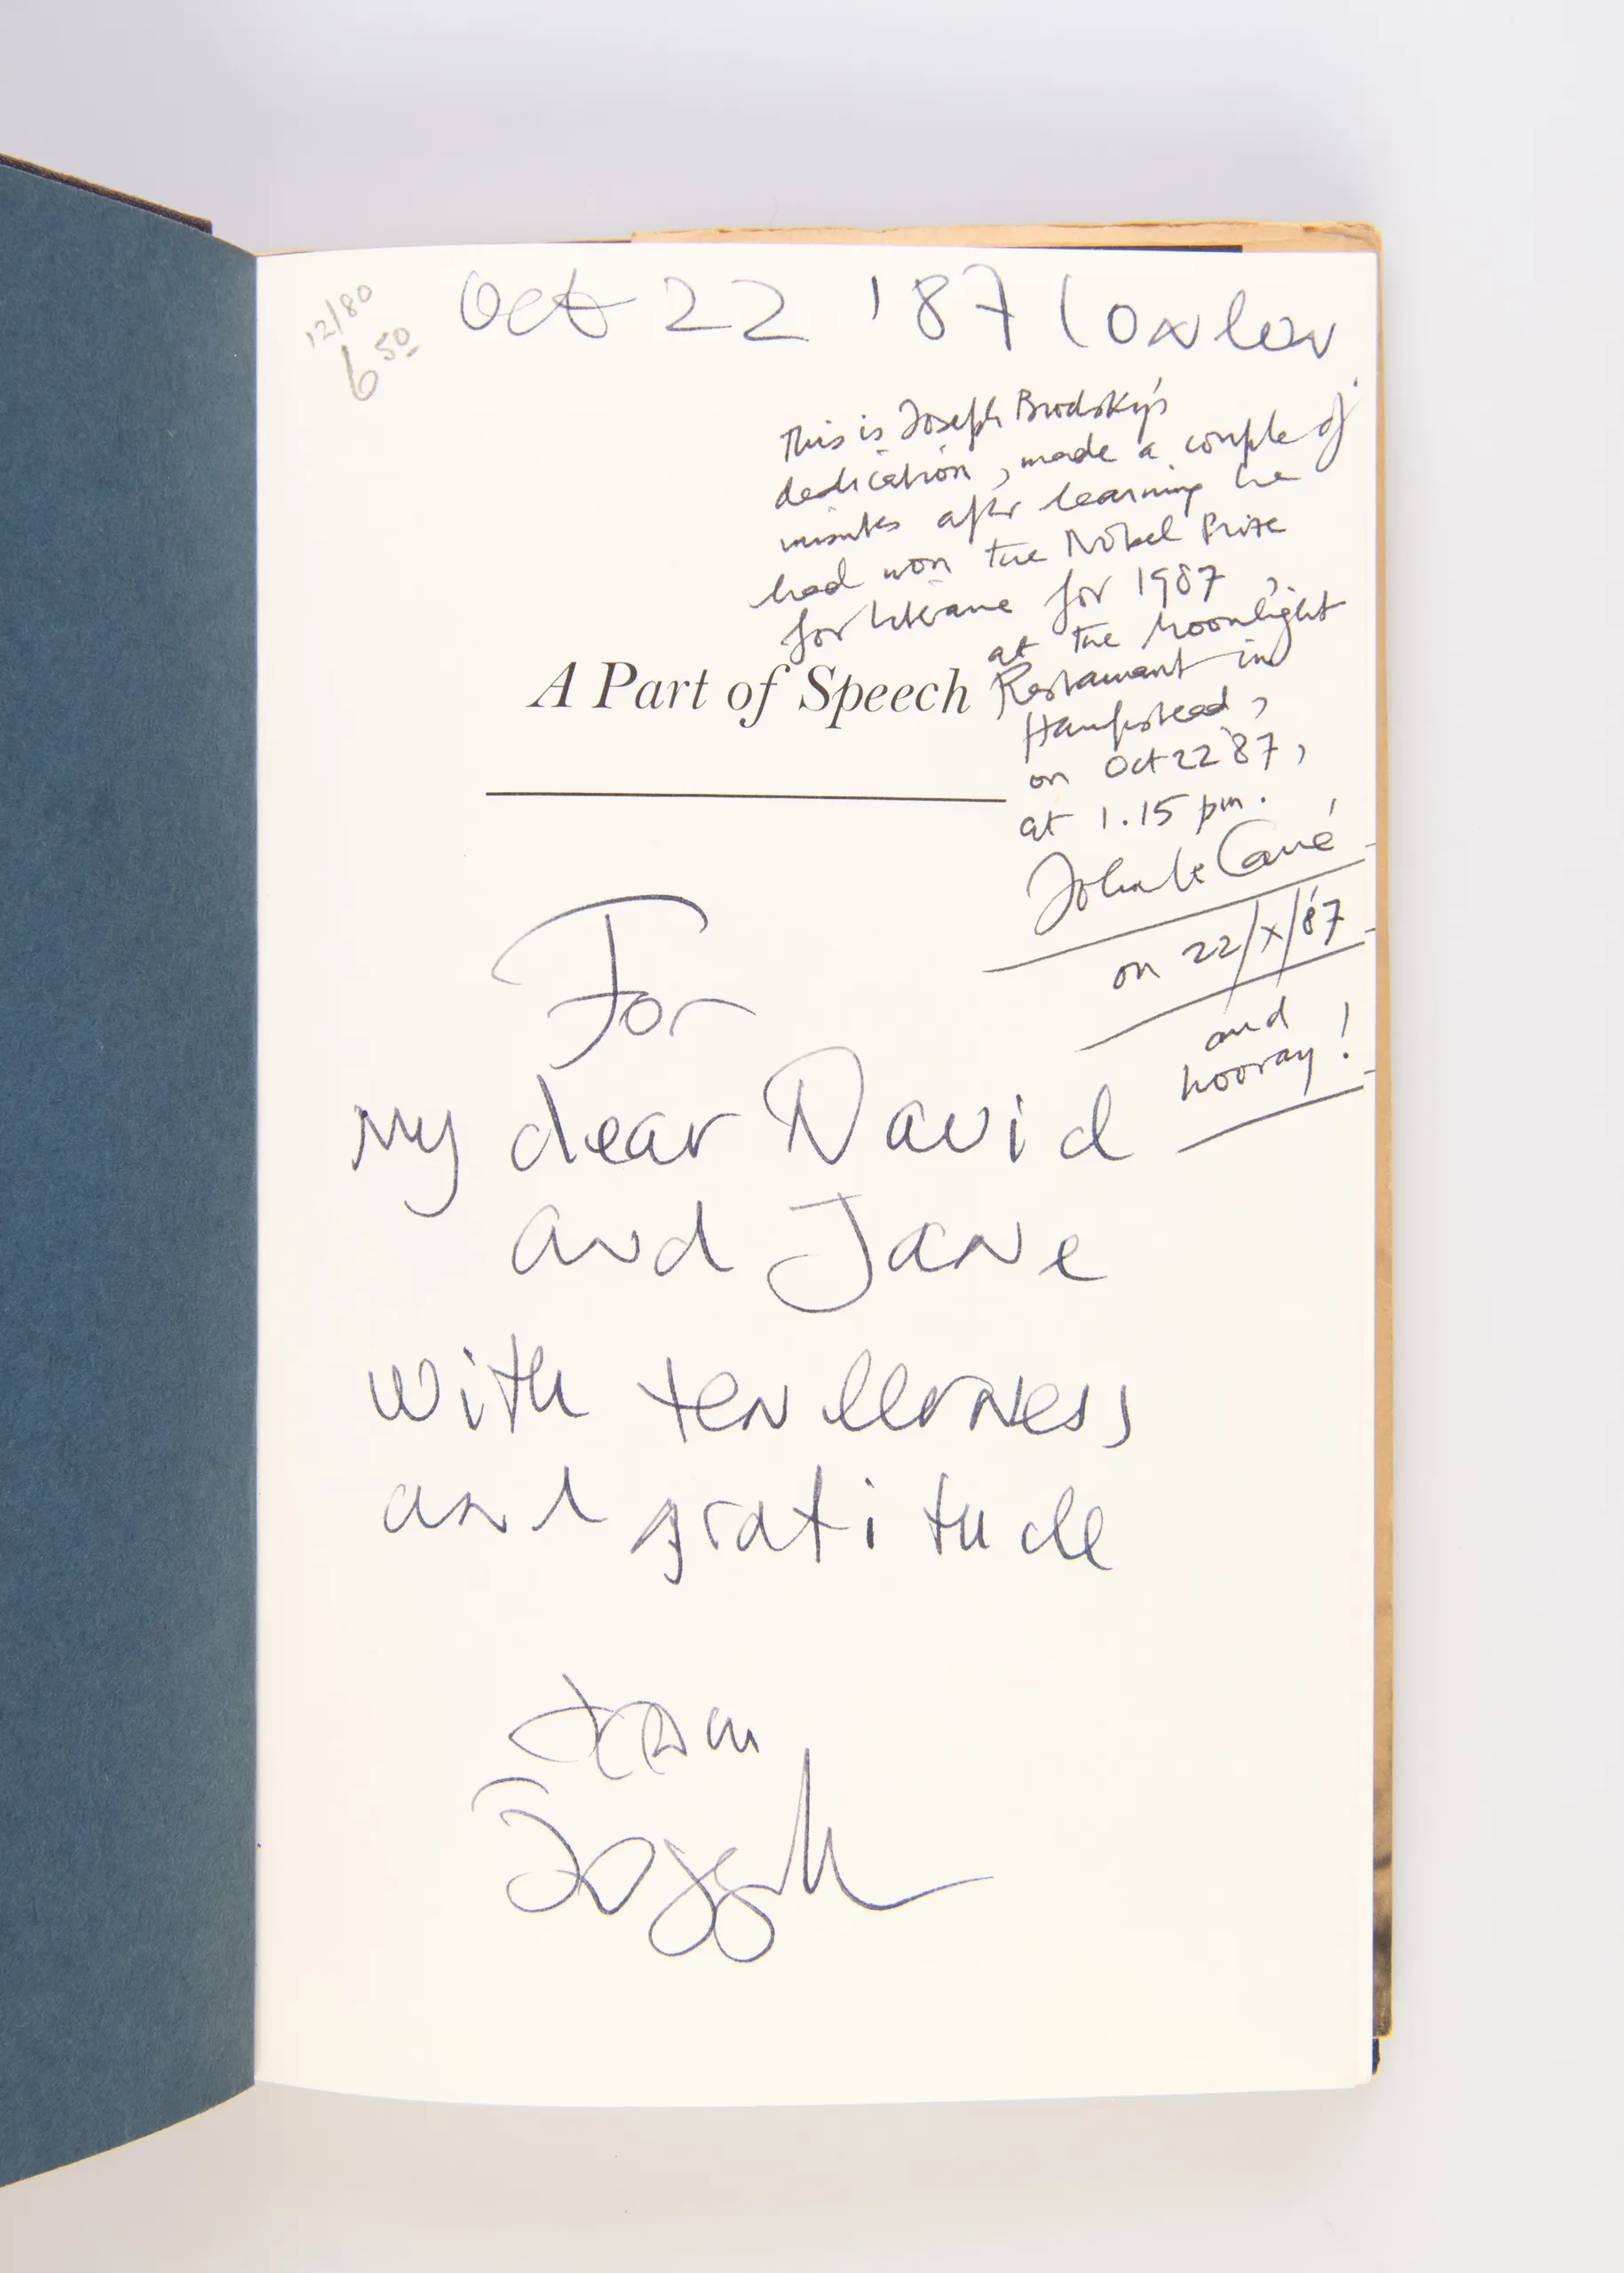 12/80
6 50
Oct 22 '87 London
This is Joseph Brodsky's
dedication, made a couple of
minutes after learning he
had won the Nobel Prize
for literature for 1987,
at the Moonlight
Restaurant in
Hampstead,
on Oct 22 '87,
at 1.15 pm.
John le Carré
on 22/X/'87
and
hooray!
A Part of Speech
For
My dear David
and Jane
with tenderness
and gratitude
from
Joseph